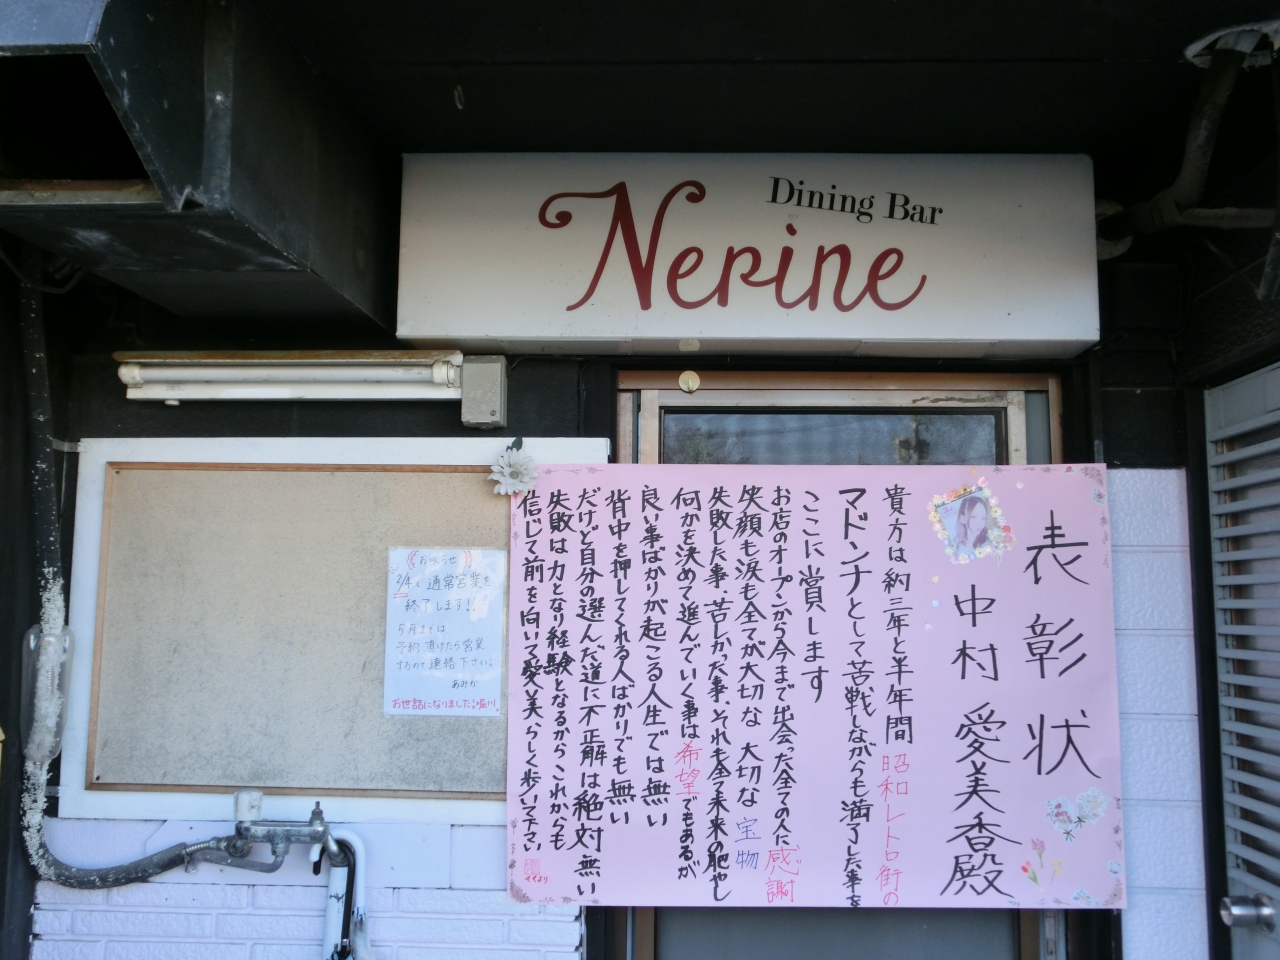 Dining Bar
Nerine
表彰状
中村愛美香殿
貴方は約三年と半年間昭和レトロ街の
マドンナとして苦戦しながらも満了した事を
ここに賞します
お店のオープンから今まで出会った全ての人に感謝
笑顔も涙も全てが大切な大切な宝物
失敗した事、苦しかった事、それも全て未来の肥やし
何かを決めて進んでいく事は希望でもあるが
良い事ばかりが起こる人生では無い
背中を押してくれる人ばかりでも無い
だけど自分の選んだ道に不正解は絶対無い
失敗は力となり経験となるからこれからも
信じて前を向いて愛美らしく歩いて下さい
お知らせ
2/4で通常営業を
終了します!!
5月までは
予約頂けたら営業
するので連絡下さい♪
あみか
お世話になりました